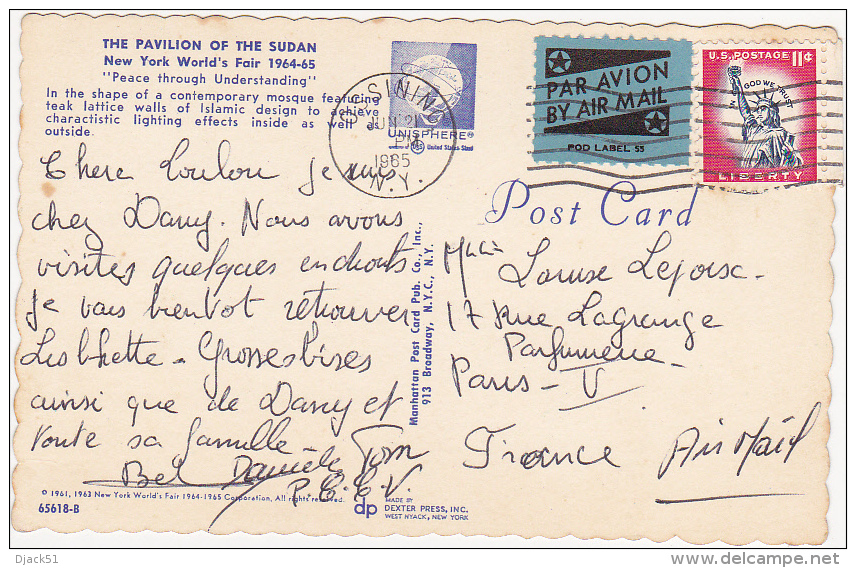 THE PAVILION OF THE SUDAN
New York World's Fair 1964-65
"Peace through Understanding"
In the shape of a contemporary mosque featuring
teak lattice walls of Islamic design to achieve
charactistic lighting effects inside as well as
outside.
UNISPHERE®
United States Steel
OSSINING
JUN 21
PM
1965
N.Y.
PAR AVION
BY AIR MAIL
POD LABEL 55
U.S. POSTAGE 11¢
IN GOD WE TRUST
LIBERTY
Post Card
Chere Loulou je suis
chez Dany. Nous avons
visites quelques endroits
je vais bientot retrouver
Grosses bises
ainsi que de Dany et
toute sa famille
Danièle Tom
Manhattan Post Card Pub. Co., Inc.,
913 Broadway, N.Y.C., N.Y.
Louise
17 Rue Lagrange
Parfumerie
Paris - V
France Air Mail
© 1961, 1963 New York World's Fair 1964-1965 Corporation. All rights reserved.
65618-B
dp MADE BY
DEXTER PRESS, INC.
WEST NYACK, NEW YORK
Djack51
delcampe.net